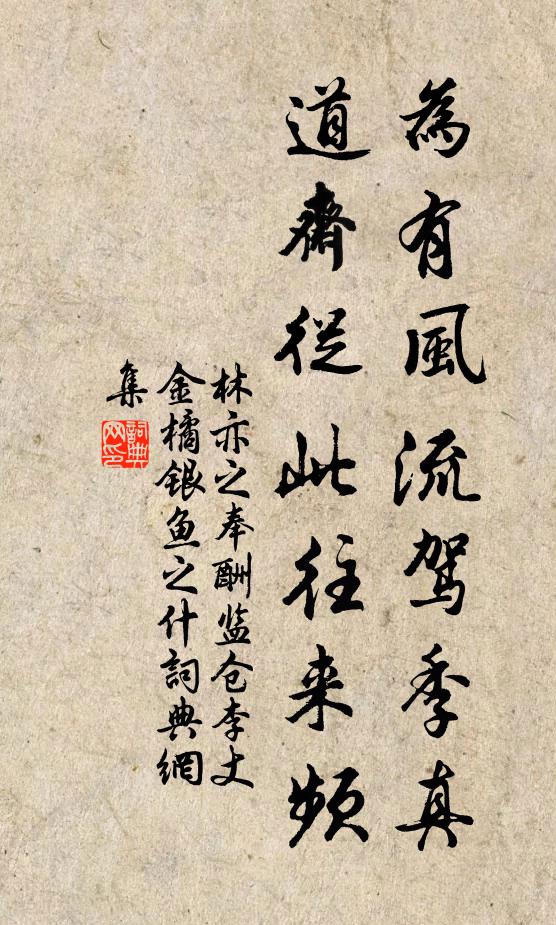 為有風流駕季真
道齊從此往來頻
林亦之奉酬监仓李丈
金橘银鱼之什詞典網
集
詞典
网印